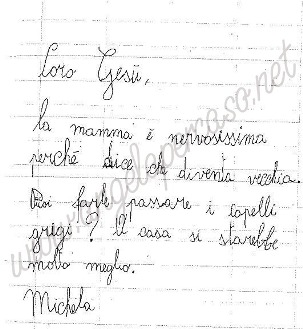 Caro Gesù,
la mamma è nervosissima
perché dice che diventa vecchia.
Puoi farle passare i capelli
grigi? A casa si starebbe
molto meglio.
Michela
www.angeloperoso.net